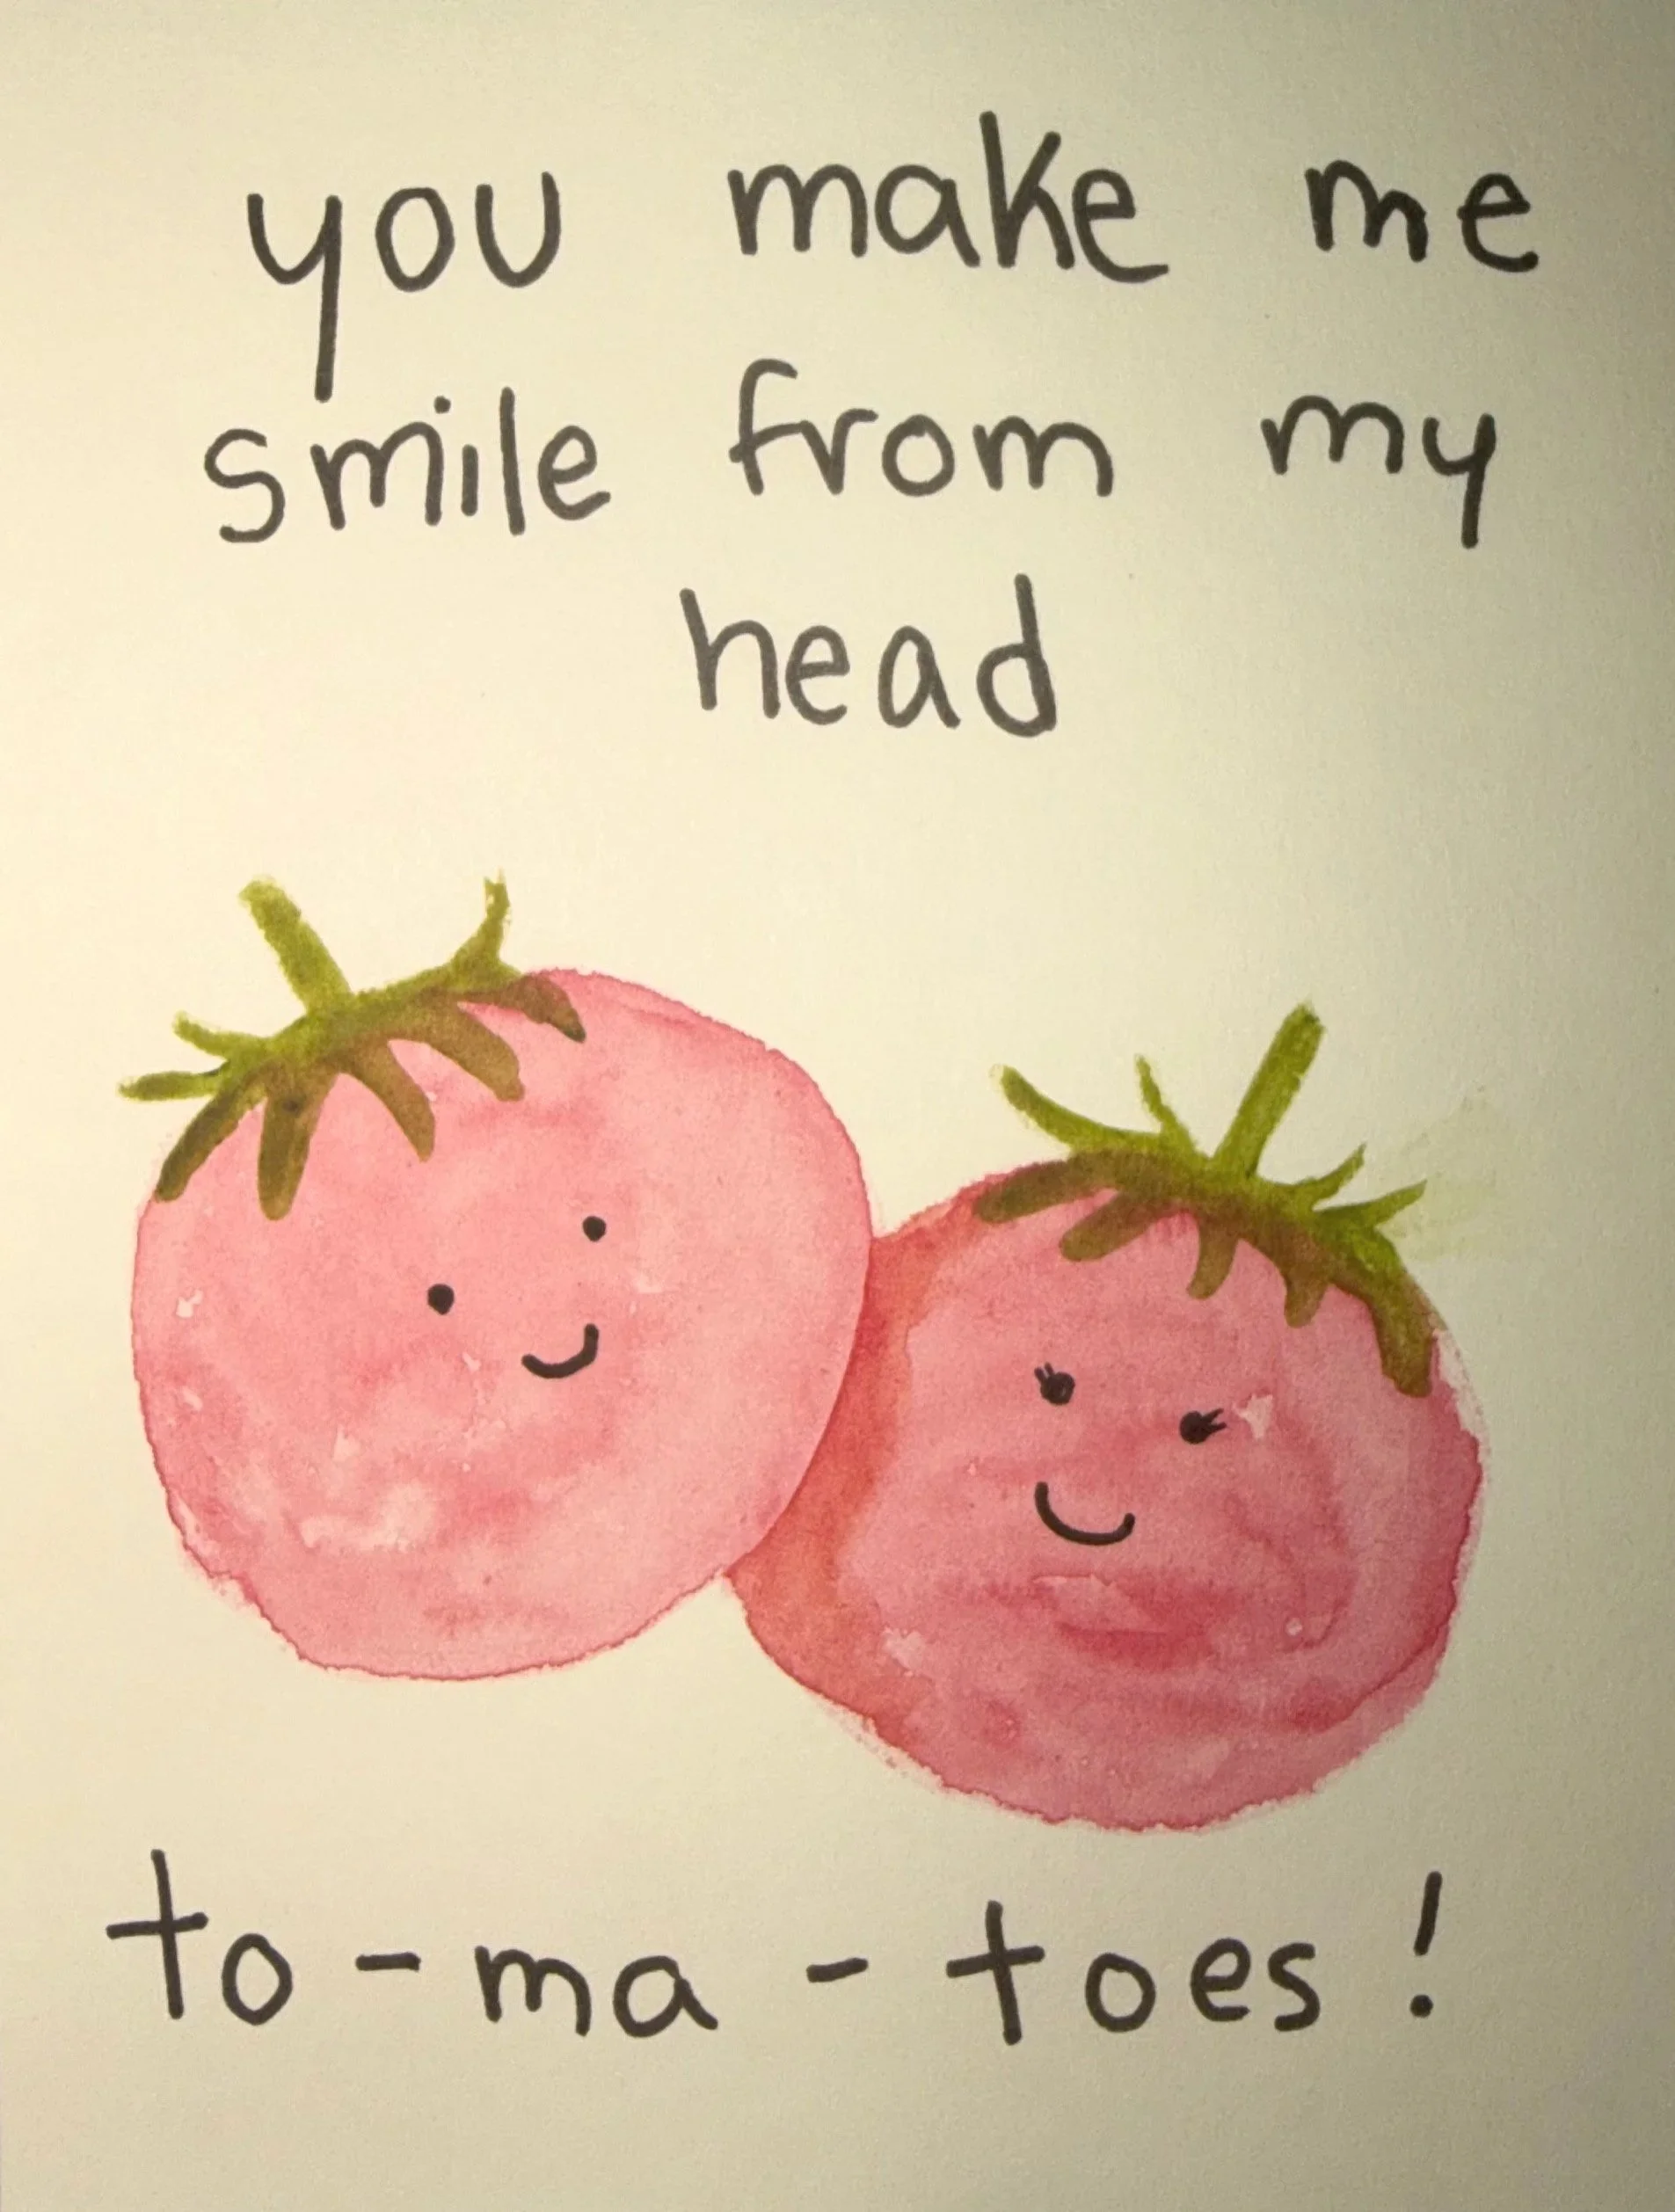 you make me
smile from my
head
to-ma-toes!